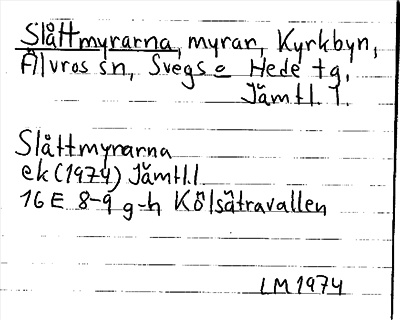 Slåttmyrarna, myran, Kyrkbyn,
Älvros sn, Svegs o Hede tg,
Jämtl. l.
Slåttmyrarna
ek (1974) Jämtl.l
16 E 8-9 g-h Kölsätravallen
LM 1974